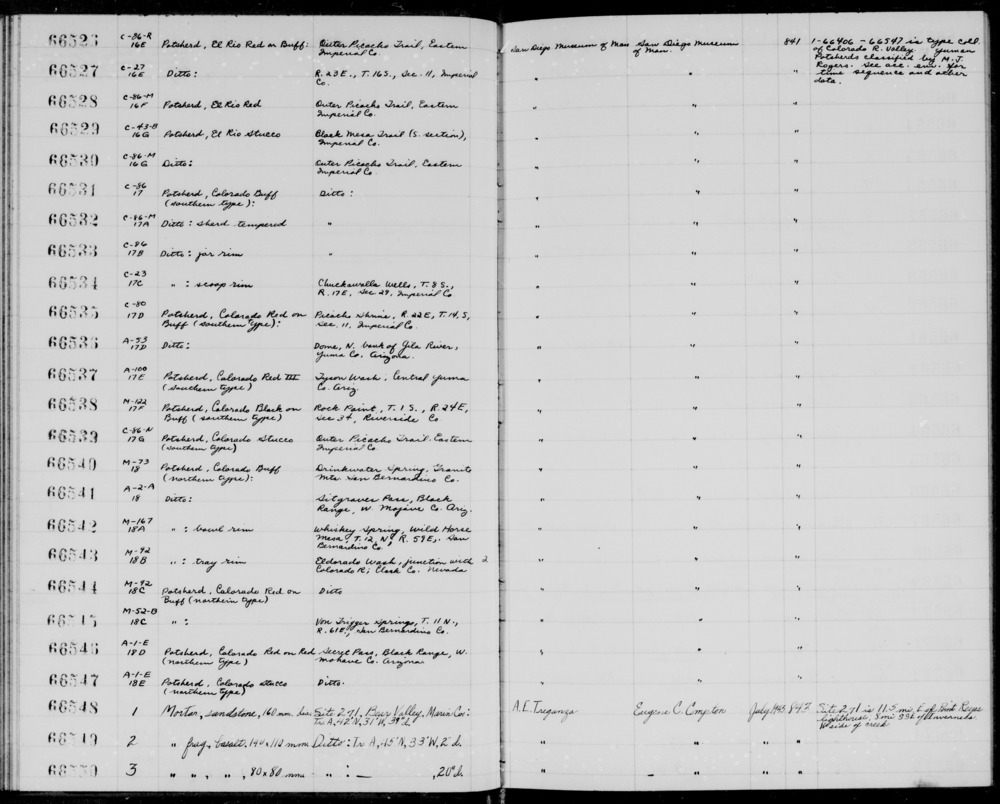 66526 C-86-R 16E Potsherd, El Rio Red on Buff: Outer Picacho Trail, Eastern Imperial Co. San Diego Museum of Man San Diego Museum of Man. 841 1-66406 - 66547 is type coll. of Colorado R. Valley Yuman Potsherds classified by M.J. Rogers. See acc. env. for time sequence and other data.
66527 C-27 16E Ditto: R. 23E., T. 16S., Sec. 11, Imperial Co. " " "
66528 C-86-M 16F Potsherd, El Rio Red Outer Picacho Trail, Eastern Imperial Co. " " "
66529 C-43-B 16G Potsherd, El Rio Stucco Black Mesa Trail (S. section), Imperial Co. " " "
66530 C-86-M 16G Ditto: Outer Picacho Trail, Eastern Imperial Co. " " "
66531 C-86 17 Potsherd, Colorado Buff (southern type): Ditto: " " "
66532 C-86-M 17A Ditto: sherd tempered " " " "
66533 C-86 17B Ditto: jar rim " " " "
66534 C-23 17C " : scoop rim Chuckawalla Wells, T. 8 S., R. 17E, Sec 29, Imperial Co " " "
66535 C-80 17D Potsherd, Colorado Red on Buff (southern type): Picacho Shrine, R. 22E, T. 14, S, Sec. 11, Imperial Co. " " "
66536 A-53 17D Ditto: Dome, N. bank of Gila River, Yuma Co. Arizona. " " "
66537 A-100 17E Potsherd, Colorado Red III (southern type) Tyson Wash, Central Yuma Co. Ariz. " " "
66538 M-122 17F Potsherd, Colorado Black on Buff (southern type) Rock Paint, T. 1 S., R. 24E, Sec 34, Riverside Co " " "
66539 C-86-N 17G Potsherd, Colorado Stucco (southern type) Outer Picacho Trail. Eastern Imperial Co. " " "
66540 M-73 18 Potsherd, Colorado Buff (northern type): Drinkwater Spring, Granite Mts. San Bernardino Co. " " "
66541 A-2-A 18 Ditto: Sitgraves Pass, Black Range, W. Mojave Co. Ariz. " " "
66542 M-167 18A " : bowl rim Whiskey Spring, Wild Horse Mesa, T. 12, N, R. 59E, San Bernardino Co " " "
66543 M-92 18B " : tray rim Eldorado Wash, junction with Colorado R; Clark Co. Nevada 2 " " "
66544 M-92 18C Potsherd, Colorado Red on Buff (northern type) Ditto " " "
66545 M-52-B 18C " : Von Trigger Springs, T. 11 N., R. 61E, San Bernardino Co. " " "
66546 A-1-E 18D Potsherd, Colorado Red on Red (northern type) Secret Pass, Black Range, W. Mohave Co. Arizona " " "
66547 A-1-E 18E Potsherd, Colorado Stucco (northern type) Ditto. " " "
66548 1 Mortar, sandstone, 160 mm. Site 271, Bear Valley, Marin Co: Tr A, 42'N, 31'W, A.E. Treganza Eugene C. Compton July 1945 847 Site 271 is 11.5 mi. E of Point Reyes lighthouse, 8 mi S3E of Inverness. W side of creek
66549 2 " frag., basalt. 140 x 112 mm Ditto: Tr A, 45'N, 33'W, 2'd. " " " "
66550 3 " " " " , 80 x 80 mm " : — , 20"d. " — " " "